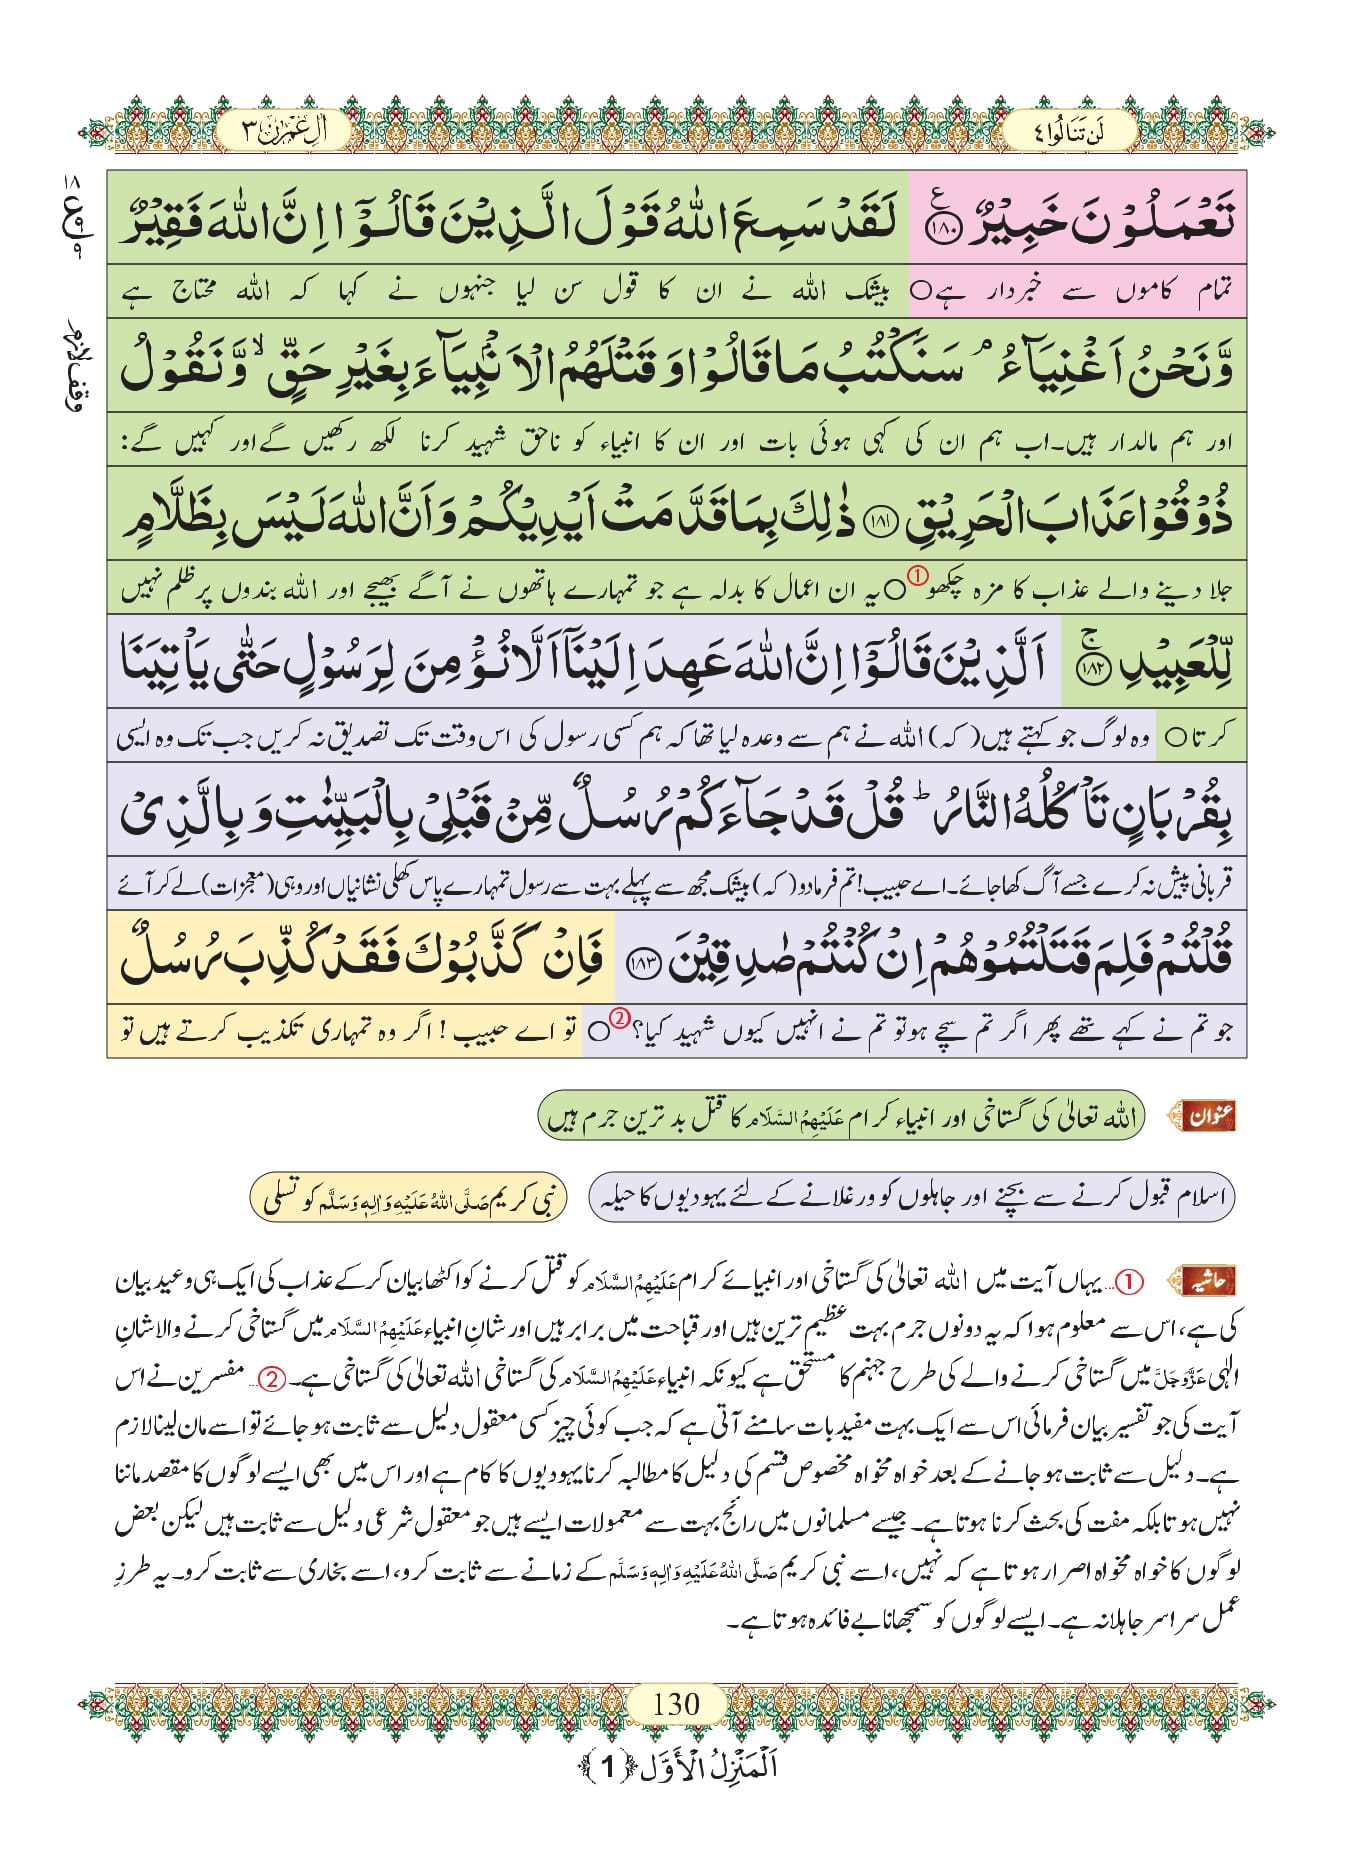 لَنْ تَنَالُوا ٤
اٰلِ عِمْرٰن ٣
تَعْمَلُوْنَ خَبِيْرٌ ﴿۱۸۰﴾ ع لَقَدْ سَمِعَ اللّٰهُ قَوْلَ الَّذِيْنَ قَالُوْۤا اِنَّ اللّٰهَ فَقِيْرٌ
تمام کاموں سے خبردار ہے○ بیشک اللہ نے ان کا قول سن لیا جنہوں نے کہا کہ اللہ محتاج ہے
وَّنَحْنُ اَغْنِيَآءُ ۘ سَنَكْتُبُ مَا قَالُوْا وَ قَتْلَهُمُ الْاَنْۢبِيَآءَ بِغَيْرِ حَقٍّ ۙ وَّنَقُوْلُ
اور ہم مالدار ہیں۔اب ہم ان کی کہی ہوئی بات اور ان کا انبیاء کو ناحق شہید کرنا لکھ رکھیں گے اور کہیں گے:
ذُوْقُوْا عَذَابَ الْحَرِيْقِ ﴿۱۸۱﴾ ذٰلِكَ بِمَا قَدَّمَتْ اَيْدِيْكُمْ وَ اَنَّ اللّٰهَ لَيْسَ بِظَلَّامٍ
جلا دینے والے عذاب کا مزہ چکھو①○ یہ ان اعمال کا بدلہ ہے جو تمہارے ہاتھوں نے آگے بھیجے اور اللہ بندوں پر ظلم نہیں
لِّلْعَبِيْدِ ﴿۱۸۲﴾ ج اَلَّذِيْنَ قَالُوْۤا اِنَّ اللّٰهَ عَهِدَ اِلَيْنَاۤ اَلَّا نُؤْمِنَ لِرَسُوْلٍ حَتّٰى يَاْتِيَنَا
کرتا○ وہ لوگ جو کہتے ہیں (کہ) اللہ نے ہم سے وعدہ لیا تھا کہ ہم کسی رسول کی اس وقت تک تصدیق نہ کریں جب تک وہ ایسی
بِقُرْبَانٍ تَاْكُلُهُ النَّارُ ؕ قُلْ قَدْ جَآءَكُمْ رُسُلٌ مِّنْ قَبْلِيْ بِالْبَيِّنٰتِ وَ بِالَّذِيْ
قربانی پیش نہ کرے جسے آگ کھا جائے۔اے حبیب! تم فرما دو (کہ) بیشک مجھ سے پہلے بہت سے رسول تمہارے پاس کھلی نشانیاں اور وہی (معجزات) لے کر آئے
قُلْتُمْ فَلِمَ قَتَلْتُمُوْهُمْ اِنْ كُنْتُمْ صٰدِقِيْنَ ﴿۱۸۳﴾ فَاِنْ كَذَّبُوْكَ فَقَدْ كُذِّبَ رُسُلٌ
جو تم نے کہے تھے پھر اگر تم سچے ہو تو تم نے انہیں کیوں شہید کیا؟②○ تو اے حبیب! اگر وہ تمہاری تکذیب کرتے ہیں تو
وقف لازم
عنوان اللہ تعالیٰ کی گستاخی اور انبیاء کرام عَلَيْهِمُ السَّلَام کا قتل بدترین جرم ہیں
اسلام قبول کرنے سے بچنے اور جاہلوں کو ورغلانے کے لئے یہودیوں کا حیلہ
نبی کریم صَلَّى اللهُ عَلَيْهِ وَاٰلِهٖ وَسَلَّم کو تسلی
حاشیہ ①... یہاں آیت میں اللہ تعالیٰ کی گستاخی اور انبیائے کرام عَلَيْهِمُ السَّلَام کو قتل کرنے کو اکٹھا بیان کر کے عذاب کی ایک ہی وعید بیان
کی ہے، اس سے معلوم ہوا کہ یہ دونوں جرم بہت عظیم ترین ہیں اور قباحت میں برابر ہیں اور شانِ انبیاء عَلَيْهِمُ السَّلَام میں گستاخی کرنے والا شانِ
الٰہی عَزَّوَجَلَّ میں گستاخی کرنے والے کی طرح جہنم کا مستحق ہے کیونکہ انبیاء عَلَيْهِمُ السَّلَام کی گستاخی اللہ تعالیٰ کی گستاخی ہے۔ ②... مفسرین نے اس
آیت کی جو تفسیر بیان فرمائی اس سے ایک بہت مفید بات سامنے آتی ہے کہ جب کوئی چیز کسی معقول دلیل سے ثابت ہو جائے تو اسے مان لینا لازم
ہے۔ دلیل سے ثابت ہو جانے کے بعد خواہ مخواہ مخصوص قسم کی دلیل کا مطالبہ کرنا یہودیوں کا کام ہے اور اس میں بھی ایسے لوگوں کا مقصد ماننا
نہیں ہوتا بلکہ مفت کی بحث کرنا ہوتا ہے۔ جیسے مسلمانوں میں رائج بہت سے معمولات ایسے ہیں جو معقول شرعی دلیل سے ثابت ہیں لیکن بعض
لوگوں کا خواہ مخواہ اصرار ہوتا ہے کہ نہیں، اسے نبی کریم صَلَّى اللهُ عَلَيْهِ وَاٰلِهٖ وَسَلَّم کے زمانے سے ثابت کرو، اسے بخاری سے ثابت کرو۔ یہ طرزِ
عمل سراسر جاہلانہ ہے۔ ایسے لوگوں کو سمجھانا بے فائدہ ہوتا ہے۔
130
اَلْمَنْزِلُ الْأَوَّل ﴿1﴾